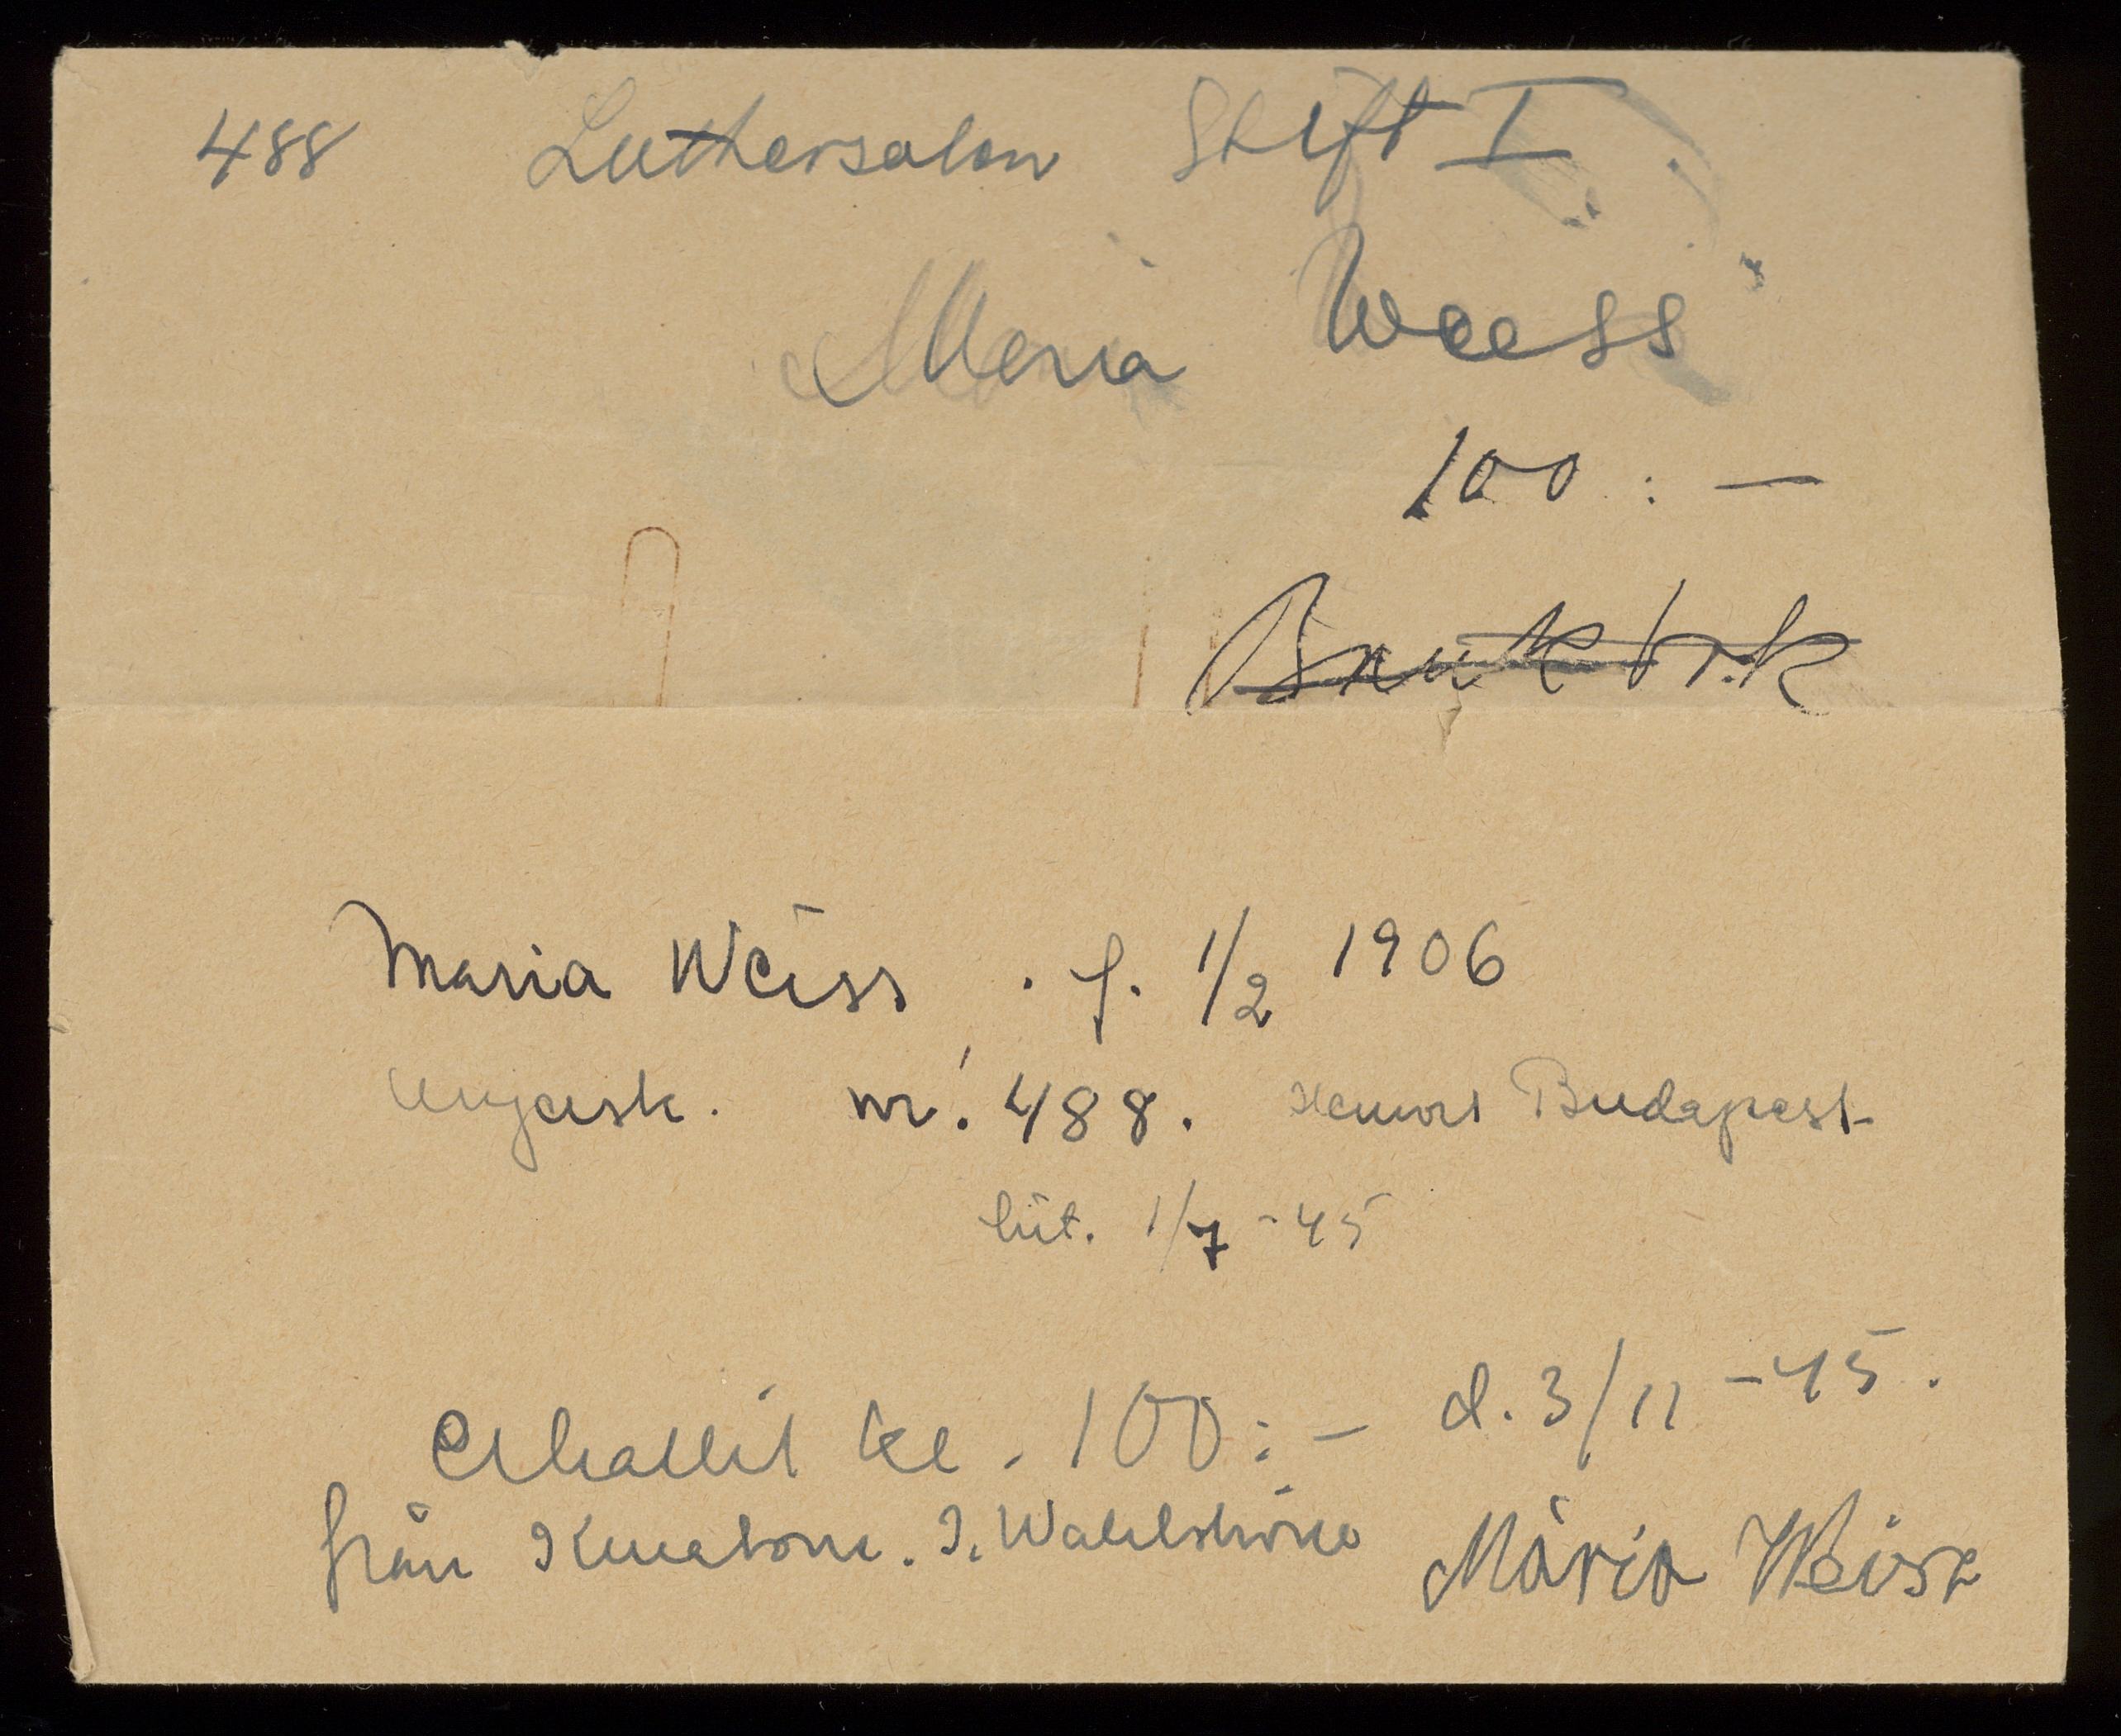 488 Luthersalen Skift I
Maria Weiss
100:-
Maria Weiss . f. 1/2 1906
Ungersk. nr. 488. Hemort Budapest
hit. 1/7 -45
Erhållit kr. 100:- d. 3/11 -45.
från I. Wahlström Mária Weisz